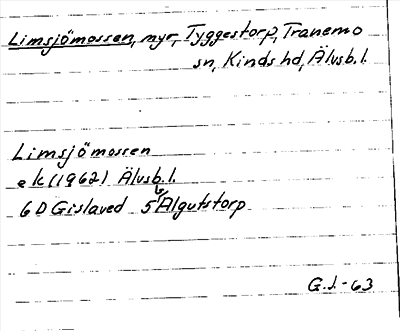 Limsjömossen, myr, Tyggestorp, Tranemo
sn, Kinds hd, Älvsb.l.
Limsjömossen
ek (1962) Älvsb.l.
6D Gislaved 5b Algutstorp
G.J.-63